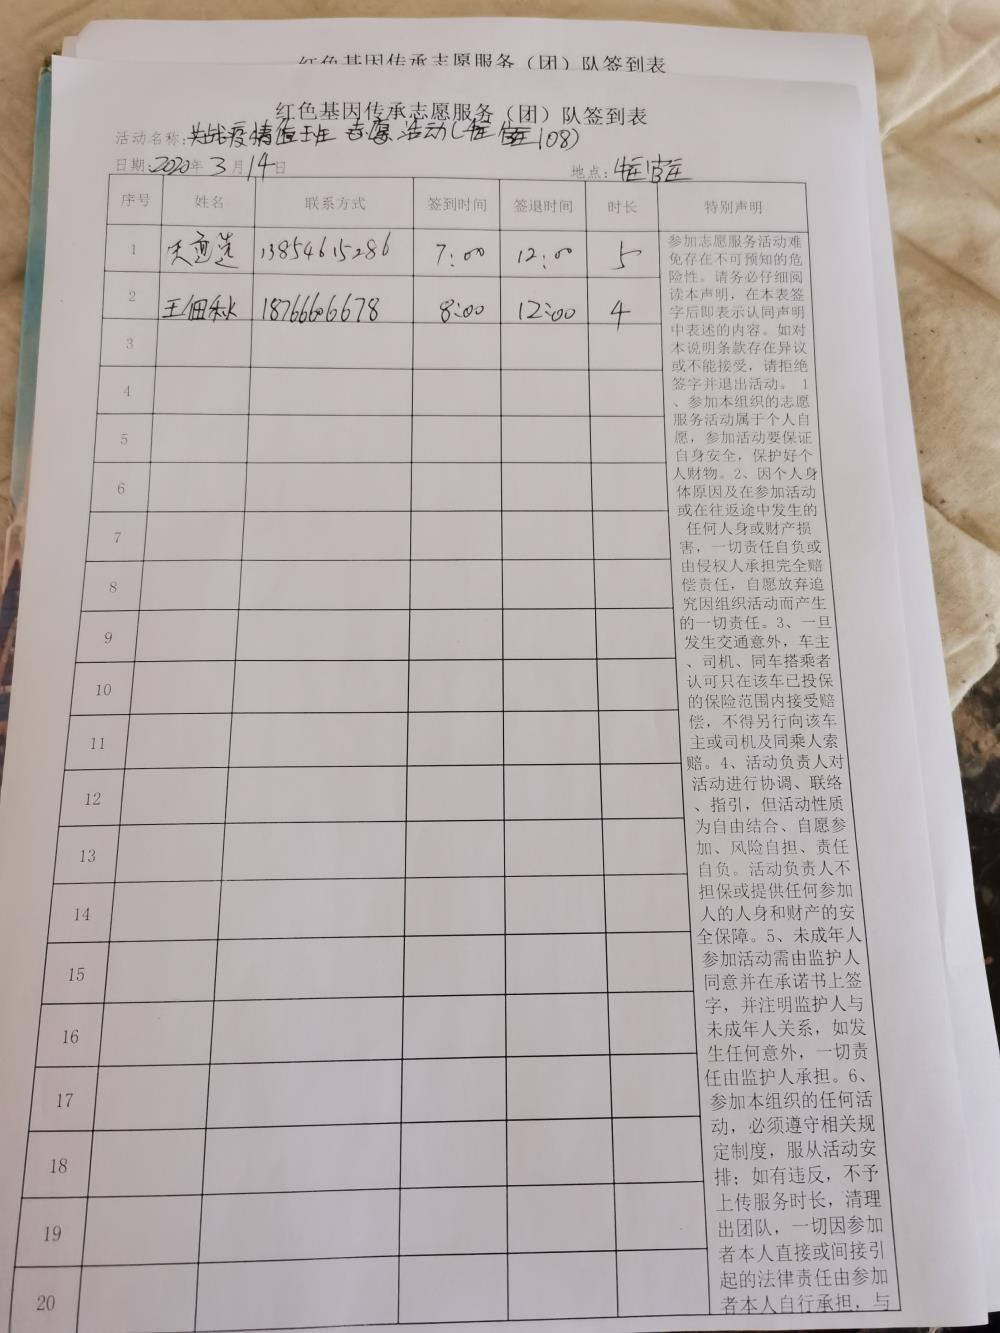 红色基因传承志愿服务（团）队签到表
红色基因传承志愿服务（团）队签到表
活动名称:共战疫情值班 志愿活动( 108)
日期:2020年 3月 14日 地点:
序号 姓名 联系方式 签到时间 签退时间 时长 特别声明
1 13854615286 7:00 12:00 5
2 王佃秋 18766606678 8:00 12:00 4
3
4
5
6
7
8
9
10
11
12
13
14
15
16
17
18
19
20
参加志愿服务活动难
免存在不可预知的危
险性。请务必仔细阅
读本声明，在本表签
字后即表示认同声明
中表述的内容。如对
本说明条款存在异议
或不能接受，请拒绝
签字并退出活动。 1
、参加本组织的志愿
服务活动属于个人自
愿，参加活动要保证
自身安全，保护好个
人财物。2、因个人身
体原因及在参加活动
或在往返途中发生的
任何人身或财产损
害，一切责任自负或
由侵权人承担完全赔
偿责任，自愿放弃追
究因组织活动而产生
的一切责任。3、一旦
发生交通意外，车主
、司机、同车搭乘者
认可只在该车已投保
的保险范围内接受赔
偿，不得另行向该车
主或司机及同乘人索
赔。4、活动负责人对
活动进行协调、联络
、指引，但活动性质
为自由结合、自愿参
加、风险自担、责任
自负。活动负责人不
担保或提供任何参加
人的人身和财产的安
全保障。5、未成年人
参加活动需由监护人
同意并在承诺书上签
字，并注明监护人与
未成年人关系，如发
生任何意外，一切责
任由监护人承担。6、
参加本组织的任何活
动，必须遵守相关规
定制度，服从活动安
排；如有违反，不予
上传服务时长，清理
出团队，一切因参加
者本人直接或间接引
起的法律责任由参加
者本人自行承担，与